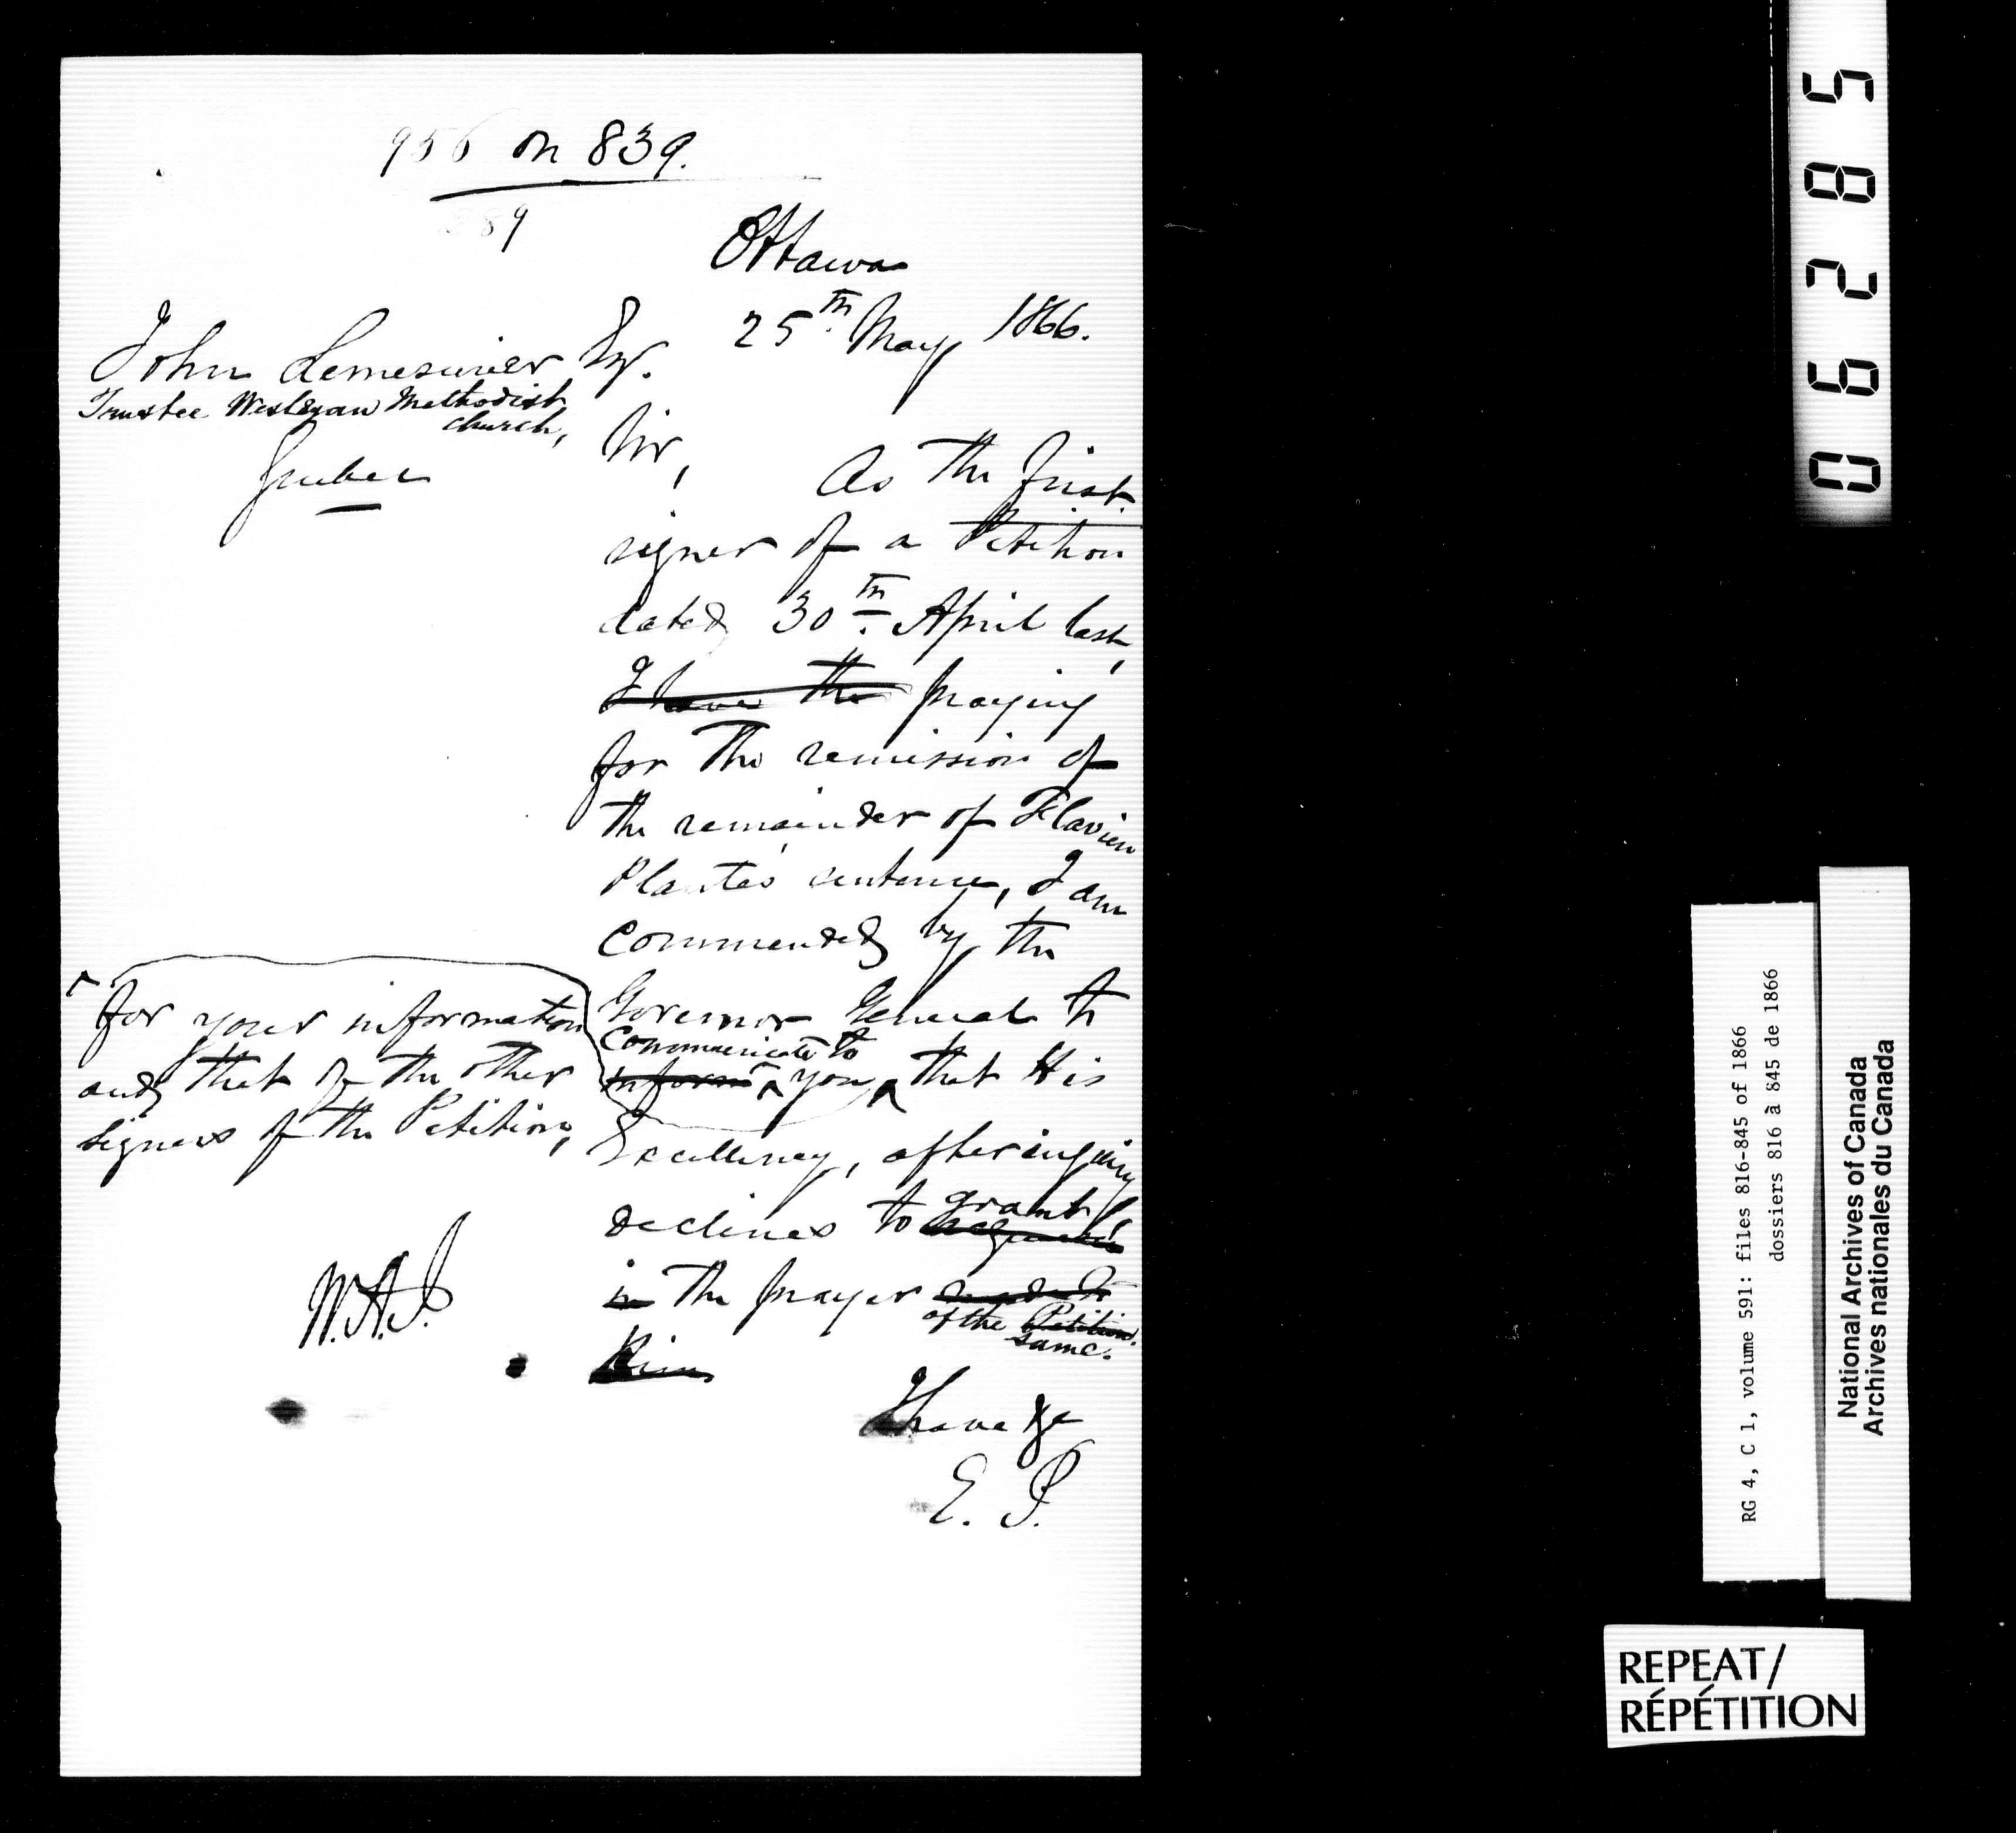 956 on 839.
289
Ottawa
25th May 1866.
John Lemesurier Esqr.
Trustee Wesleyan Methodist
church,
Quebec
Sir,
As the first
signer of a Petition
dated 30th April last,
I have the praying
for the remission of
the remainder of Flavien
Plante's sentence, I am
commanded by the
Governor General to
communicate to
inform you that His
for your information
and that of the other
signers of the Petition,
Excellency, after inquiry
declines to grant
acquiesce
in the prayer
of the Petition.
same.
I have &c
E. P.
W.A.P.
06285
RG 4, C 1, volume 591: files 816-845 of 1866
dossiers 816 à 845 de 1866
National Archives of Canada
Archives nationales du Canada
REPEAT/
RÉPÉTITION